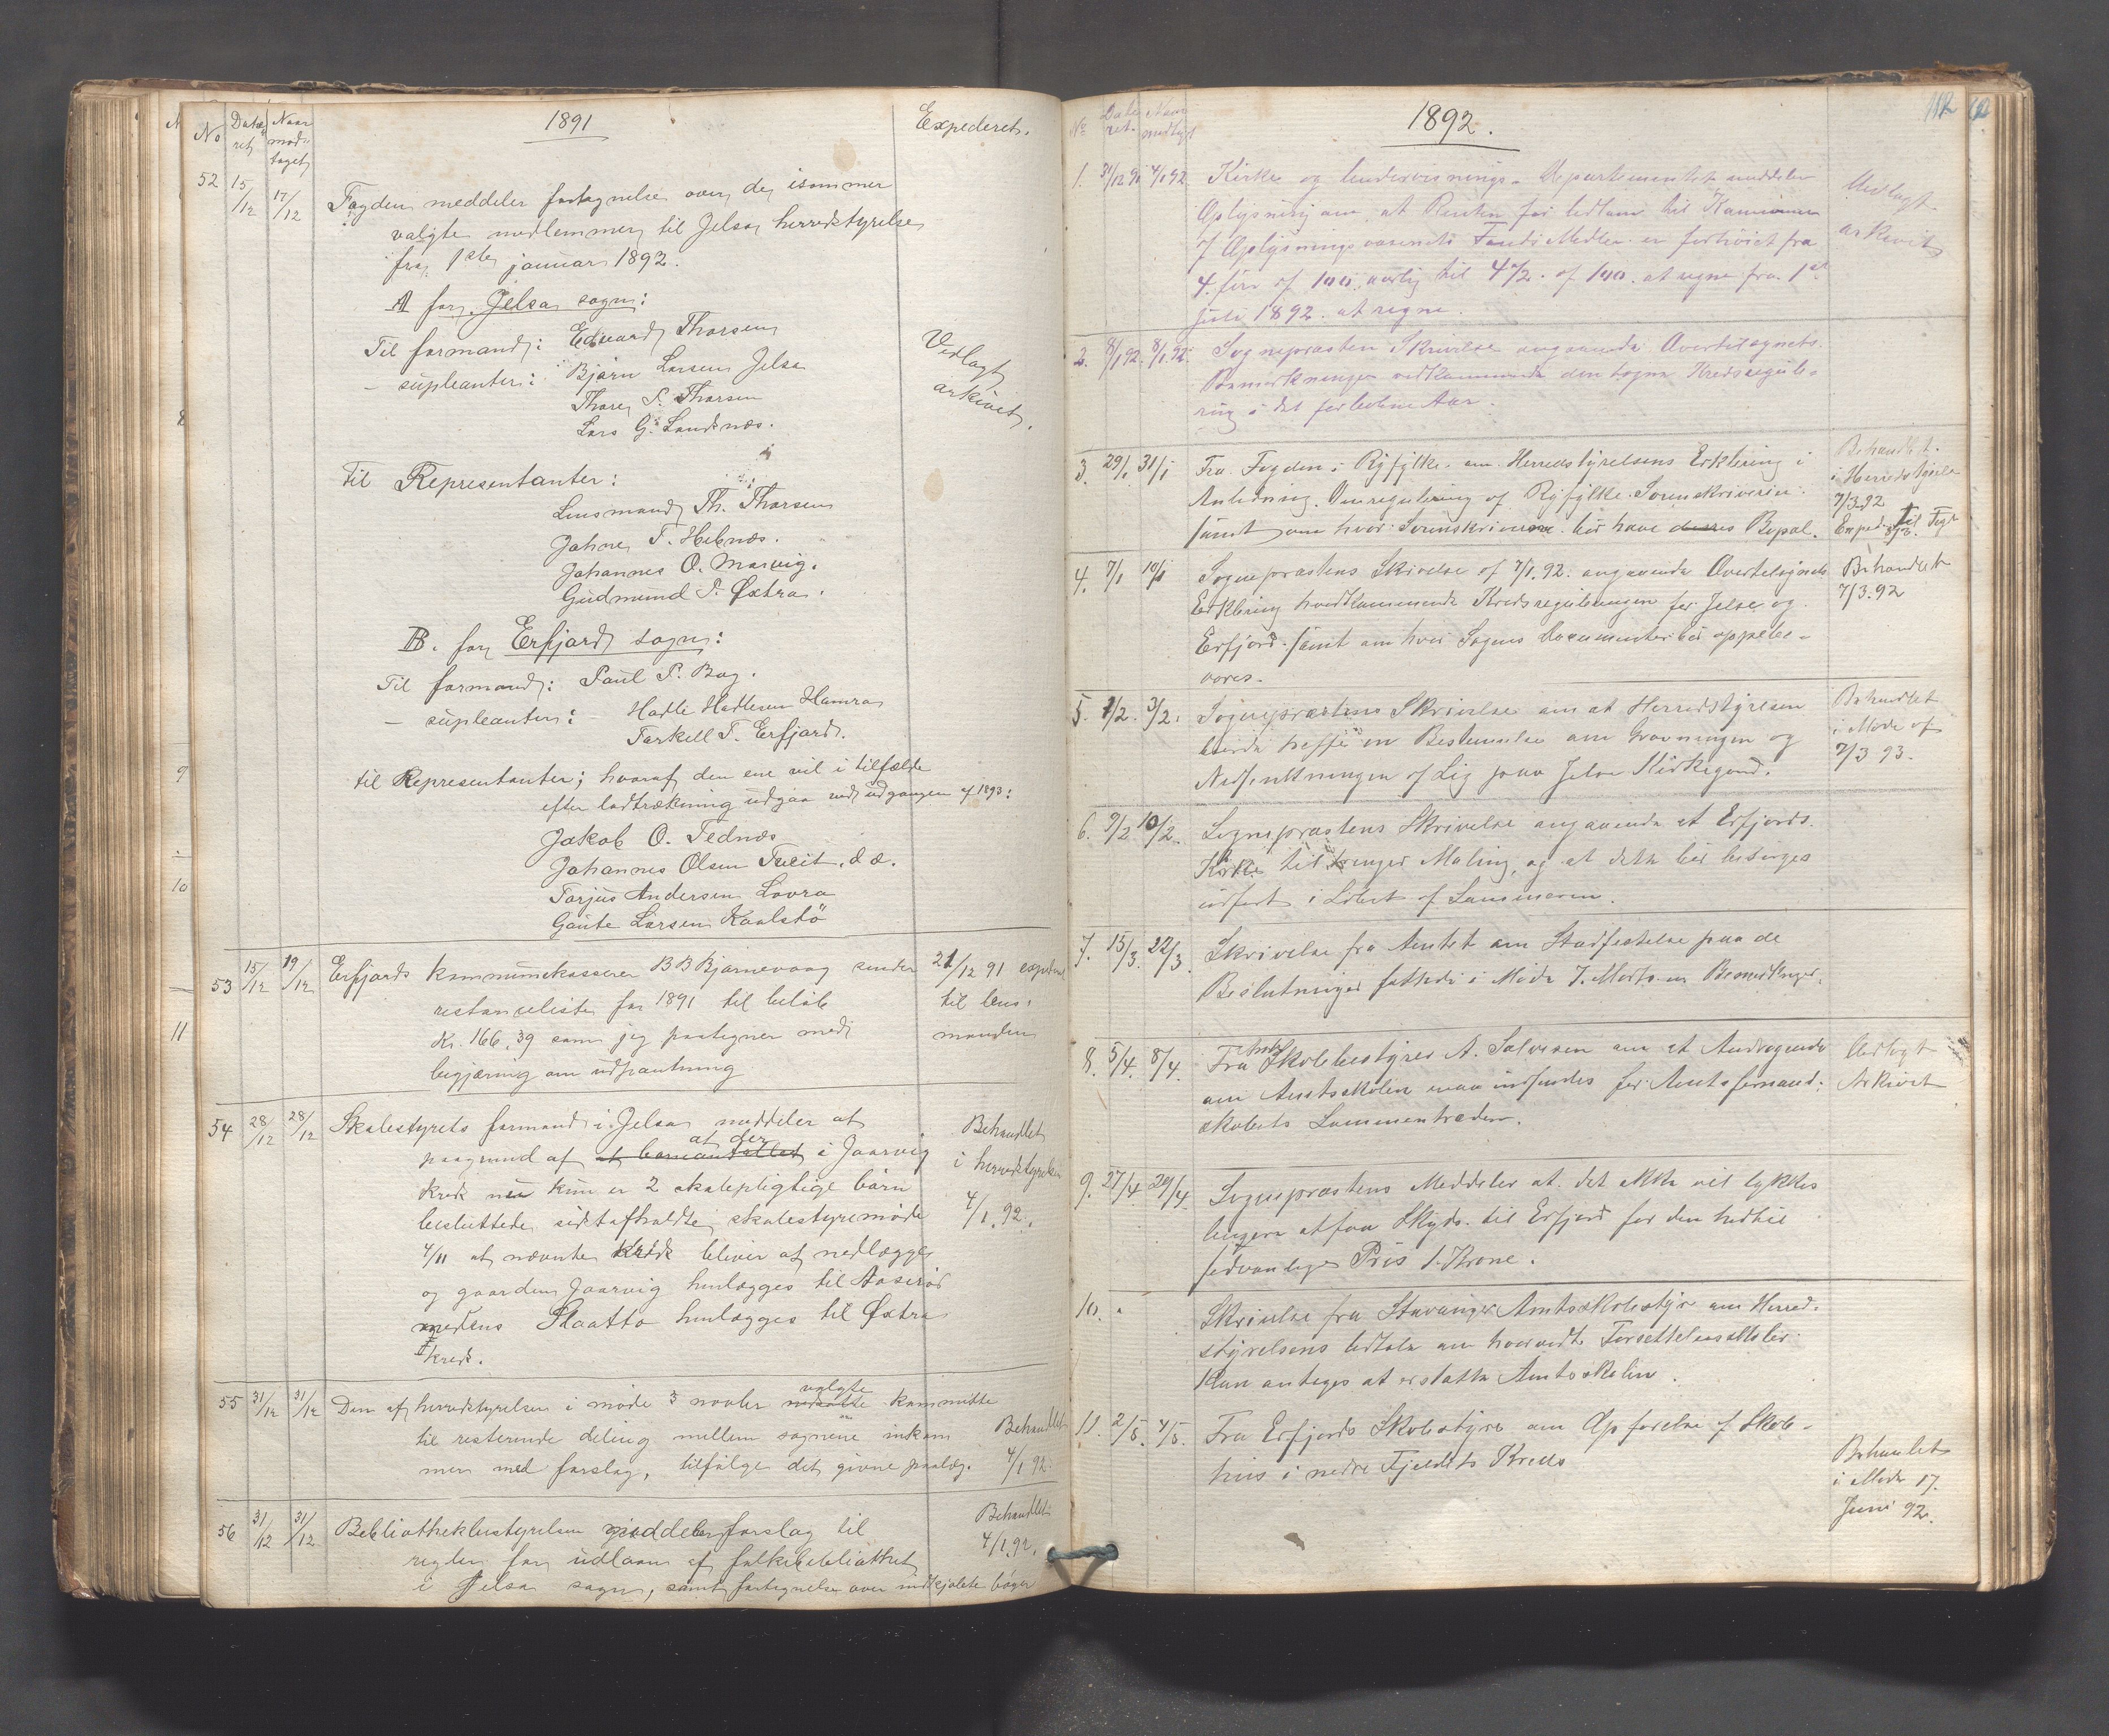 No Date- ret Naar mod- taget 1891 Expederet.
52 15/12 17/12 Fogden meddeler fortegnelse over de isommer
valgte medlemmer til Jelsa herredstyrelse
fra 1ste januar 1892.
A for Jelsa sogn:
Til formand: Edvard Thorsen
- supleanter: Bjørn Larsen Jelsa
Thore S. Thorsen
Lars G. Landsnæs.
Vedlagt
arkivet.
til Representanter:
Lensmand Th. Thorsen
Johne T. Hebnæs.
Johannes O. Marvig.
Gudmund P. Østra.
B. for Erfjord sogn:
Til formand: Paul P. Bog.
- supleanter: Hadle Hadlesen Hamra
Torkell T. Erfjord.
til Representanter; hvoraf den ene vil i tilfælde
efter lodtrækning udgaa ved udgangen af 1893:
Jakob O. Tednæs
Johannes Olsen Tveit. d æ.
Torjus Andersen Lovra
Gaute Larsen Kaalstö
53 15/12 19/12 Erfjords kommunekasserer B B Bjørnevaag sender 21/12 91 exped
restanceliste for 1891 til beløb til lens-
Kr. 166,39 som jeg paategner med manden
begjæring om udpantning
54 28/12 28/12 Skolestyrets formand i Jelsa meddeler at Behandlet
paagrund af at børneantallet at der i Jaarvig i herredstyrelsen
kreds nu kun er 2 skolepligtige børn 4/1.92.
besluttede sidstafholdte skolestyremøde
4/11 at nævnte kreds bliver at nedlægge
og gaarden Jaarvig henlægges til Aaserød
medens Staatto henlægges til Østra
kreds.
55 31/12 31/12 Den af herredstyrelsen i møde 3 novbr nedsatte valgte kommitte
til resterende deling mellem sognene inkom Behandlet
mer med forslag, tilfølge det givne paalæg. 4/1 92.
56 31/12 31/12 Bibliothekbestyrelsen meddeler forslag til Behandlet
regler for udlaan af folkebibliothet 4/1.92.
i Jelsa sogn, samt fortegnelse over indkjøbte bøger
No Date ret. Naar modtagt 1892. 112
1. 31/12 91 4/1 92 Kirke og Undervisnings-Departementet meddeler Vedlagt
Oplysning om, at Renten for Udlaan til Kommuner arkivet
af Oplysningsvæsenets Fonds Midler er forhøiet fra
4. fire af 100 aarlig til 4 1/2. af 100. at regne fra 1st
Juli 1892. at regne.
2. 8/1 92. 8/1.92. Sognepræsten Skrivelse angaaende Overtilsynets
Bemærkninger vedkommende den Kredsregule-
ring i det forløbne Aar.
3. 29/1 31/1 Fra Fogden i Ryfylke. om Herredstyrelsens Erklæring i Behandlet.
Anledning Omregulering af Ryfylke Sorenskriveri. i Herredstyrelse
samt om hvor Sorenskriveren bør have deres Bopæl. 7/3 92
Exped. til Fogd 8/3.
4. 7/1 10/1 Sognepræstens Skrivelse af 7/1.92. angaaende Overtilsynets Behandlet
Erklæring hvedkommende Kredsreguleringen for Jelse og 7/3.92
Erfjord. samt om hvor Sognes Documenter bør oppebe-
vares.
5. 1/2. 3/2. Sognepræstens Skrivelse om at Herredstyrelsen Behandlet
burde træffe en Bestemmelse om Gravningen og i Møde af
Nedsættningen af Lig paa Jelse Kirkegaard. 7/3 93.
6. 9/2 10/2. Sognepræstens Skrivelse angaaende at Erfjords
Kirke til trænger Maling, og at dette bør besørges
udført i Løbet af Sommeren.
7. 15/3. 22/3. Skrivelse fra Amtet om Stadfestelse paa de
Beslutninger fattede i Møde 7. Marts Bemerkninger.
8. 5/4. 8/4. Fra Amts Skolebestyrer A. Salvesen om at Andragende Vedlagt
om Amtsskolen maa indsendes før Amtsformand- Arkivet
skabets Sammentræden.
9. 27/4 29/4. Sognepræstens Meddeler at det ikke vil lykkes
længere at faa Skyds til Erfjord for den hidtil
sedvanlige Pris 1. Krone.
10. Skrivelse fra Stavanger Amtsskolestyre om Herred-
styrelsens Udtale om hvorvidt Forsettelsesskoler
kan antages at erstatte Amtsskolen.
11. 2/5. 4/5. Fra Erfjords Skolestyre om Opførelse af Skole-
hus i nedre Fjeldets Kreds Behandlet
i Møde 17.
Juni 92.
9
10
11